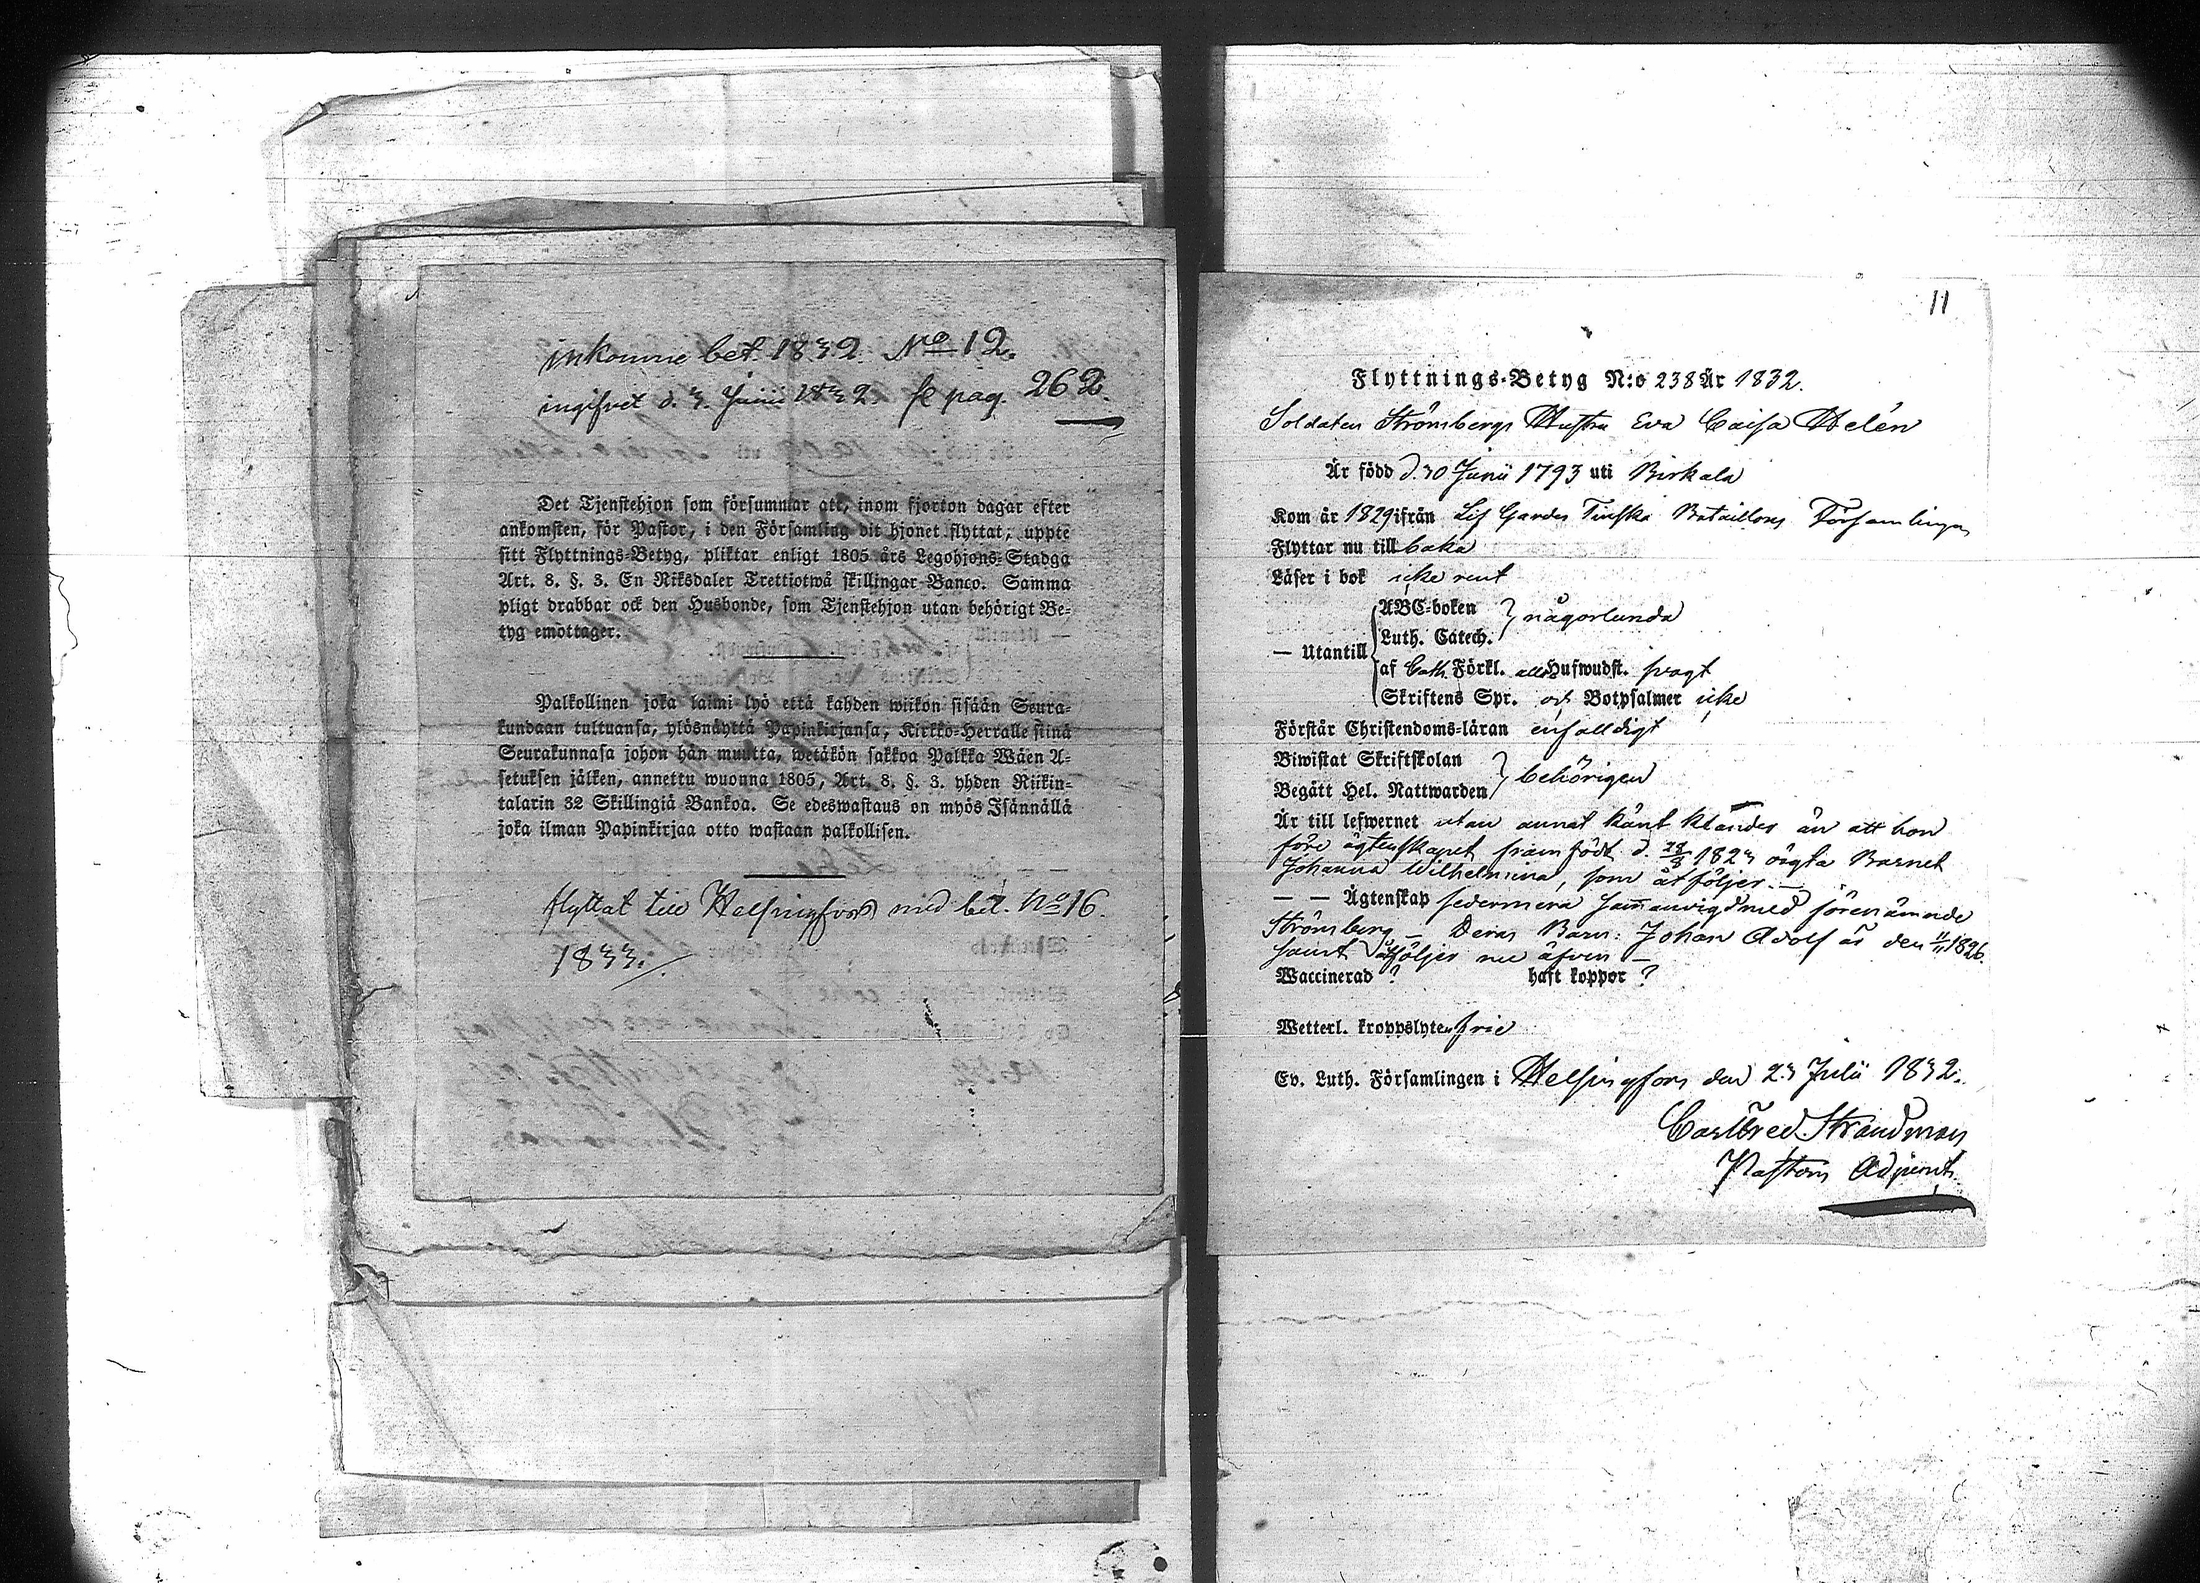 inkomne bet. 1832. No 12.
ingifvet d. 3. Junii 1832. se pag. 262.
Det Tjenstehjon som försummar att, inom fjorton dagar efter
ankomsten, för Pastor, i den Församling dit hjonet flyttat, uppte
sitt Flyttnings-Betyg, pliktar enligt 1805 års Legohjons-Stadga
Art. 8. §. 3. En Riksdaler Trettiotwå skillingar Banco. Samma
pligt drabbar ock den Husbonde, som Tjenstehjon utan behörigt Be-
tyg emottager.
Palkollinen joka laimi-lyö että kahden wiikon sisään Seura-
kundaan tultuansa, ylösnäyttä Papinkirjansa, Kirkko-Herralle siinä
Seurakunnasa johon hän muutta, wetäkön sakkoa Palkka Wäen A-
setuksen jälken, annettu wuonna 1805, Art. 8. §. 3. yhden Riikin-
talarin 32 Skillingiä Bankoa. Se edeswastaus on myös Isännällä
joka ilman Papinkirjaa otto wastaan palkollisen.
flyttat till Helsingfors med bet. No 16.
1833.
11
Flyttnings-Betyg N:o 238 År 1832.
Soldaten Strömbergs Hustru Eva Caisa Helén
Är född d. 30 Junii 1793 uti Birkala
Kom år 1829 ifrån Lif Gardes Finska Bataillons Församlingen
Flyttar nu till baka
Läser i bok icke rent
— Utantill
ABC-boken
Luth. Catech. någorlunda
af Cath. Förkl. alla Hufwudst. svagt
Skriftens Spr. och Botpsalmer icke
Förstår Christendoms-läran enfalldigt
Biwistat Skriftskolan
Begått Hel. Nattwarden behörigen
Är till lefwernet utan annat känt klander än att hon
före ägtenskapet framfödt d. 28/8 1823 oägta Barnet
Johanna Wilhelmina, som åtföljer. —
— — Ägtenskap sedermera sammanvigd med förenämnde
Strömberg — Deras Barn: Johan Adolf är den 11/11 1826.
samt åtföljer nu äfven —
Waccinerad ? haft koppor ?
Wetterl. kroppslyten frie
Ev. Luth. Församlingen i Helsingfors den 23 Julii 1832.
Carl Fred. Strandman
Pastors Adjunct.